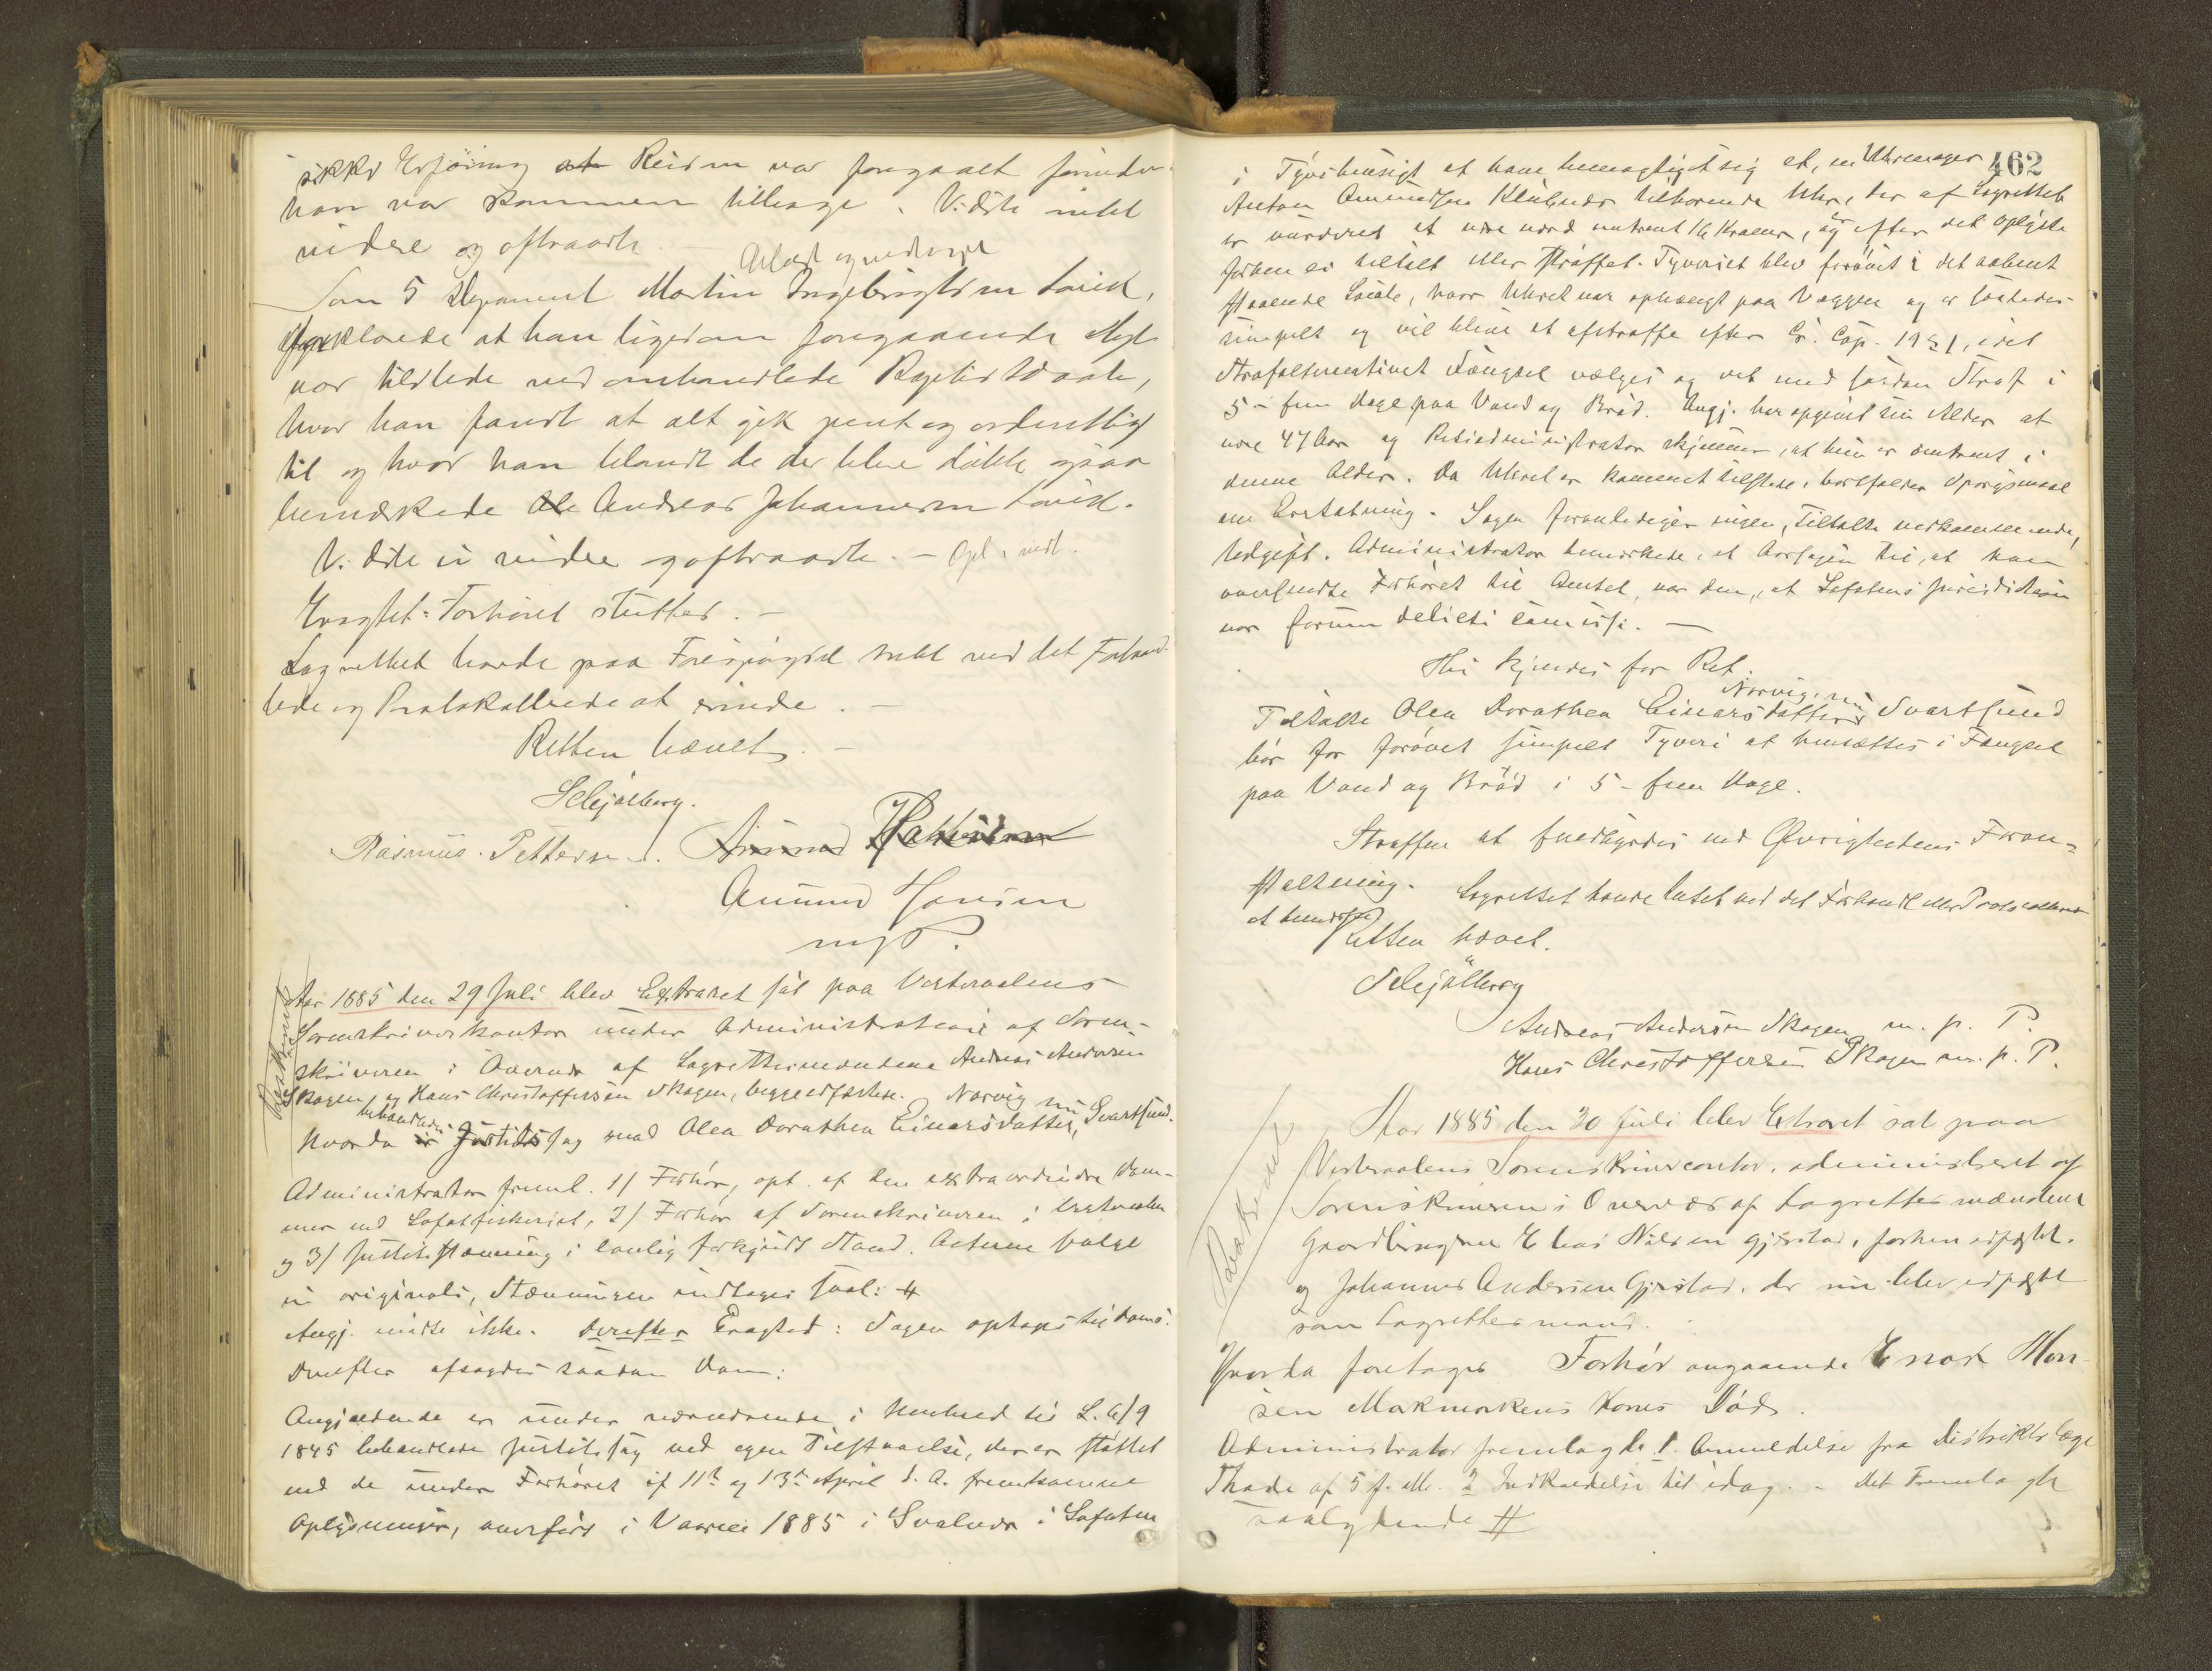 sikker Erfaring at Reisen var foregaaet forinden
han var kommen tilbage. Vidste intet
videre og aftraadte. Oplæst og vedtaget
Som 5 Deponent Martin Ingebrigtsen
forklarede at han ligesom foregaaende Dept
var tilstede ved omhandlede
hvor han fandt at alt gik pent og ordentligt
til og hvor han blandt de der blev døbte ogsaa
bemærkede Ole Andreas Johannesen
Vidste ei videre og aftraadte. — Opl. vedt.
Eragtet: Forhøret sluttes. —
Lagrettet havde paa Forespørgsel intet ved det Forhand-
lede og Protokollerede at erindre. —
Retten hævet. —
Selzjølberg.
Rasmus Pettersen. Amund
Amund Hansen
m p
Aar 1885 den 29 Juli blev Extraret sat paa Vesteraalens
Sorenskriverkontor under Administration af Soren-
skriveren i Overvær af Lagrettesmændene Andreas Andersen
Skagen og Hans Christoffersen Skagen, begge edfæstede.
Norvig nu Svartsund.
Hvorda behandledes Justitssag mod Olea Dorathea Einarsdatter,
Administrator freml. 1/ Forhør, opt. af den extraordinære Dom-
mer ved Lofotfiskeriet, 2/ Forhør af Sorenskriveren i Vesteraalen
og 3/ Justitsstævning i lovlig forkyndt Stand. Acterne følge
in originali, Stævningen indtages saal: #
Angj. mødte ikke. Derefter Eragted: Sagen optages til Doms.
Derefter afsagdes saadan Dom:
Angjældende er under nærværende i Henhold til L. 6/9
1845 behandlede Justitssag ved egen Tilstaaelse, der er støttet
ved de under Forhøret af 11te og 13de April d. A. fremkomne
Oplysninger, overført i Vaaren 1885 i Svolvær i Lofoten
462
i Tyvshensigt at have bemægtiget sig et, en Uhrmager
Anton Amundsen Klubnes tilhørende Uhr, der af Lagrettet
er vurderet at være værd omtrent 16 Kroner, og er efter det oplyste
forhen ei tiltalt eller straffet. Tyveriet blev forøvet i det aabent
staaende Locale, hvor Uhret var ophængt paa Væggen og er saaledes
simpelt og vil blive at afstraffe efter Cr. Cap. 19 § 1, idet
Strafalternativet Fængsel vælges og det med saadan Straf i
5 – fem Dage paa Vand og Brød. Angj. har opgivet sin Alder at
være 47 Aar og Retsadministrator skjønner, at hun er omtrent i
denne Alder. Da Uhret er kommet tilstede, bortfalder Spørgsmaal
om Erstatning. Sagen foranlediger ingen, Tiltalte vedkommende,
Udgift. Administrator bemærkede, at Aarsagen til, at han
oversendte Forhøret til Amtet, var den, at Lofotens Jurisdiktion
var forum delicti comissi. —
Thi kjendes for Ret:
Norvig, nu
Tiltalte Olea Dorathea Einarsdatter Svartsund
bør for forøvet simpelt Tyveri at hensættes i Fængsel
paa Vand og Brød i 5 – fem Dage.
Straffen at fuldbyrdes ved Øvrighedens Foran-
staltning. Lagrettet havde Intet ved det Forhandl. eller Protocollerede
at bemærke
Retten hævet.
Selzjølberg
Andreas Andersen Skagen m. p. P.
Hans Christoffersen Skagen m. p. P.
Aar 1885 den 30 Juli blev Extraret sat paa
Vesteraalens Sorenskrivercontor, administreret af
Sorenskriveren i Overvær af Lagrettesmændene
Gaardbruger Elias Nilsen Gjerstad, forhen edfæstet.
og Johannes Andersen Gjerstad, der nu blev edfæstet
som Lagrettesmand.
Hvorda foretages Forhør angaaende Enok Mon-
sen Markmarkens Kones Død.
Administrator fremlagde 1. Anmeldelse fra Distriktslæge
Thode af 5 f. M. 2 Indkaldelse til idag. – Det Fremlagte
saalydende #